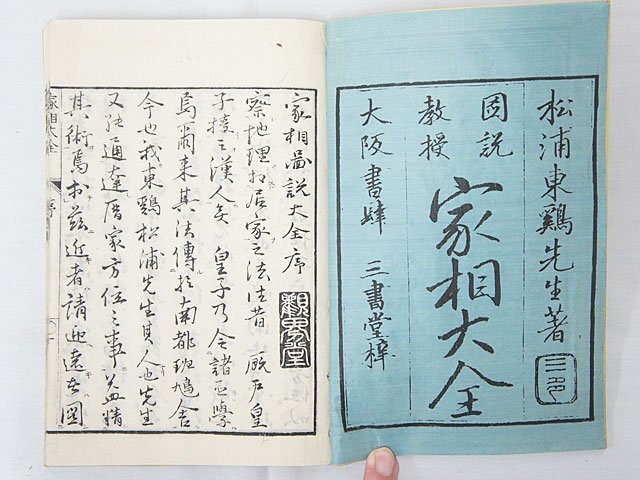 松浦東鶏先生著
図説
教授
家相大全
大阪書肆 三書堂梓
家相図説大全序
察地理相居家之法往昔 厩戸皇
子授之漢人矣 皇子乃令諸臣学
焉爾来其法傳於南都斑鳩舎
今也我東鶏松浦先生其人也先生
又能通達暦家方位之事益精
其術焉於茲近者請迎遠者図
家相大全
序